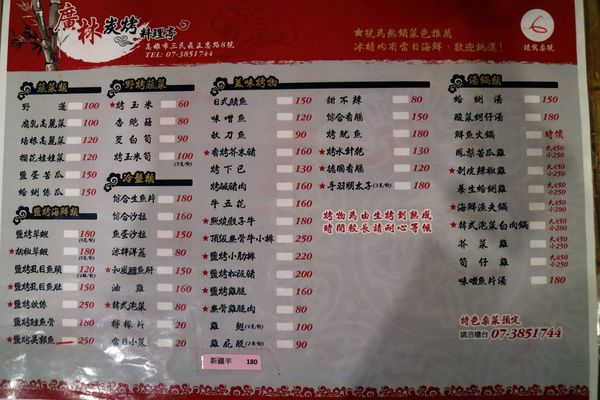 廣林炭烤料理亭
高雄市三民區正忠路8號
TEL: 07-3851744
★號為熱銷菜色推薦
冰桶內有當日海鮮,歡迎挑選!
6
請寫桌號
蔬菜類
野蓮 100
腐乳高麗菜 100
培根高麗菜 120
櫻花娃娃菜 120
鹽蛋苦瓜 150
蛤蜊絲瓜 150
鹽烤海鮮類
鹽烤草蝦 180
★胡椒草蝦 180
鹽烤虱目魚頭 120
★鹽烤虱目魚肚 150
★鹽烤軟絲 250
鹽烤鮭魚骨 180
★鹽烤吳郭魚 250
野烤蔬菜
★烤玉米 60
杏鮑菇 80
茭白筍 90
烤玉米筍 100
冷盤類
綜合生魚片 180
綜合沙拉 180
魚蛋沙拉 150
涼拌洋蔥 80
★和風鱈魚肝 150
油雞 180
★韓式泡菜 80
檸檬片 20
當日小菜 20
美味烤物
日式鯖魚 150
味噌魚 120
秋刀魚 90
★香烤芥末豬 160
烤下巴 130
烤鹹豬肉 160
牛五花 160
★照燒骰子牛 180
★頂級無骨牛小排 250
★鹽烤小肋排 220
★鹽烤松阪豬 200
★鹽烤雞腿 160
★無骨雞腿肉 160
雞翅 100
雞屁股 90
新疆羊 180
甜不辣 80
綜合香腸 150
烤魷魚 180
★烤水針魠 130
★德國香腸 120
★手羽明太子 180
烤物為由生烤到熟成
時間較長請耐心等候
湯鍋類
蛤蜊湯 150
酸菜蚵仔湯 180
鮮魚火鍋 時價
鳳梨苦瓜雞 大450 小250
★剝皮辣椒雞 大450 小250
養生蛤蜊雞 大450 小250
★海鮮漁夫鍋 大450 小280
★韓式泡菜白肉鍋 大450 小280
芥菜雞 大450 小250
筍仔雞 大450 小250
味噌魚片湯 180
特色桌菜預定
請洽櫃台 07-3851744